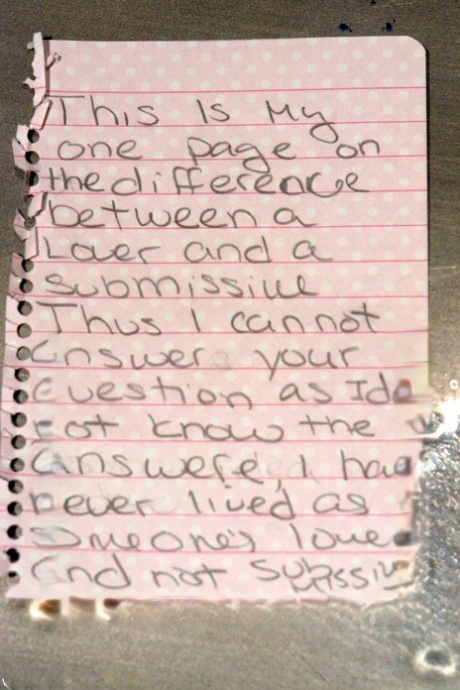 This Is My
one page on
the difference
between a
Lover and a
submissive
Thus I cannot
answer your
question as I do
not know the
answere, I had
never lived as
Someone's lover
and not submissiv